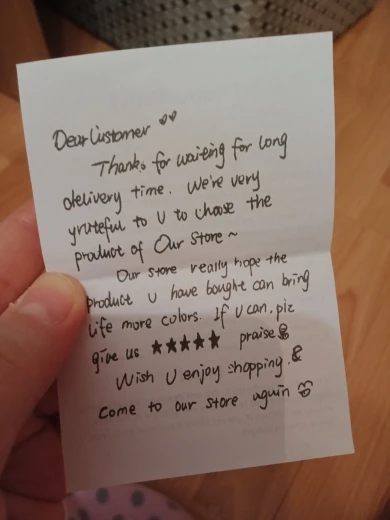 Dear Customer ♡♡
Thanks for waiting for long
delivery time. We're very
grateful to U to choose the
product of Our Store ~
Our store really hope the
product U have bought can bring
life more colors. If U can, plz
give us ★★★★★ praise
Wish U enjoy shopping. &
Come to our store again